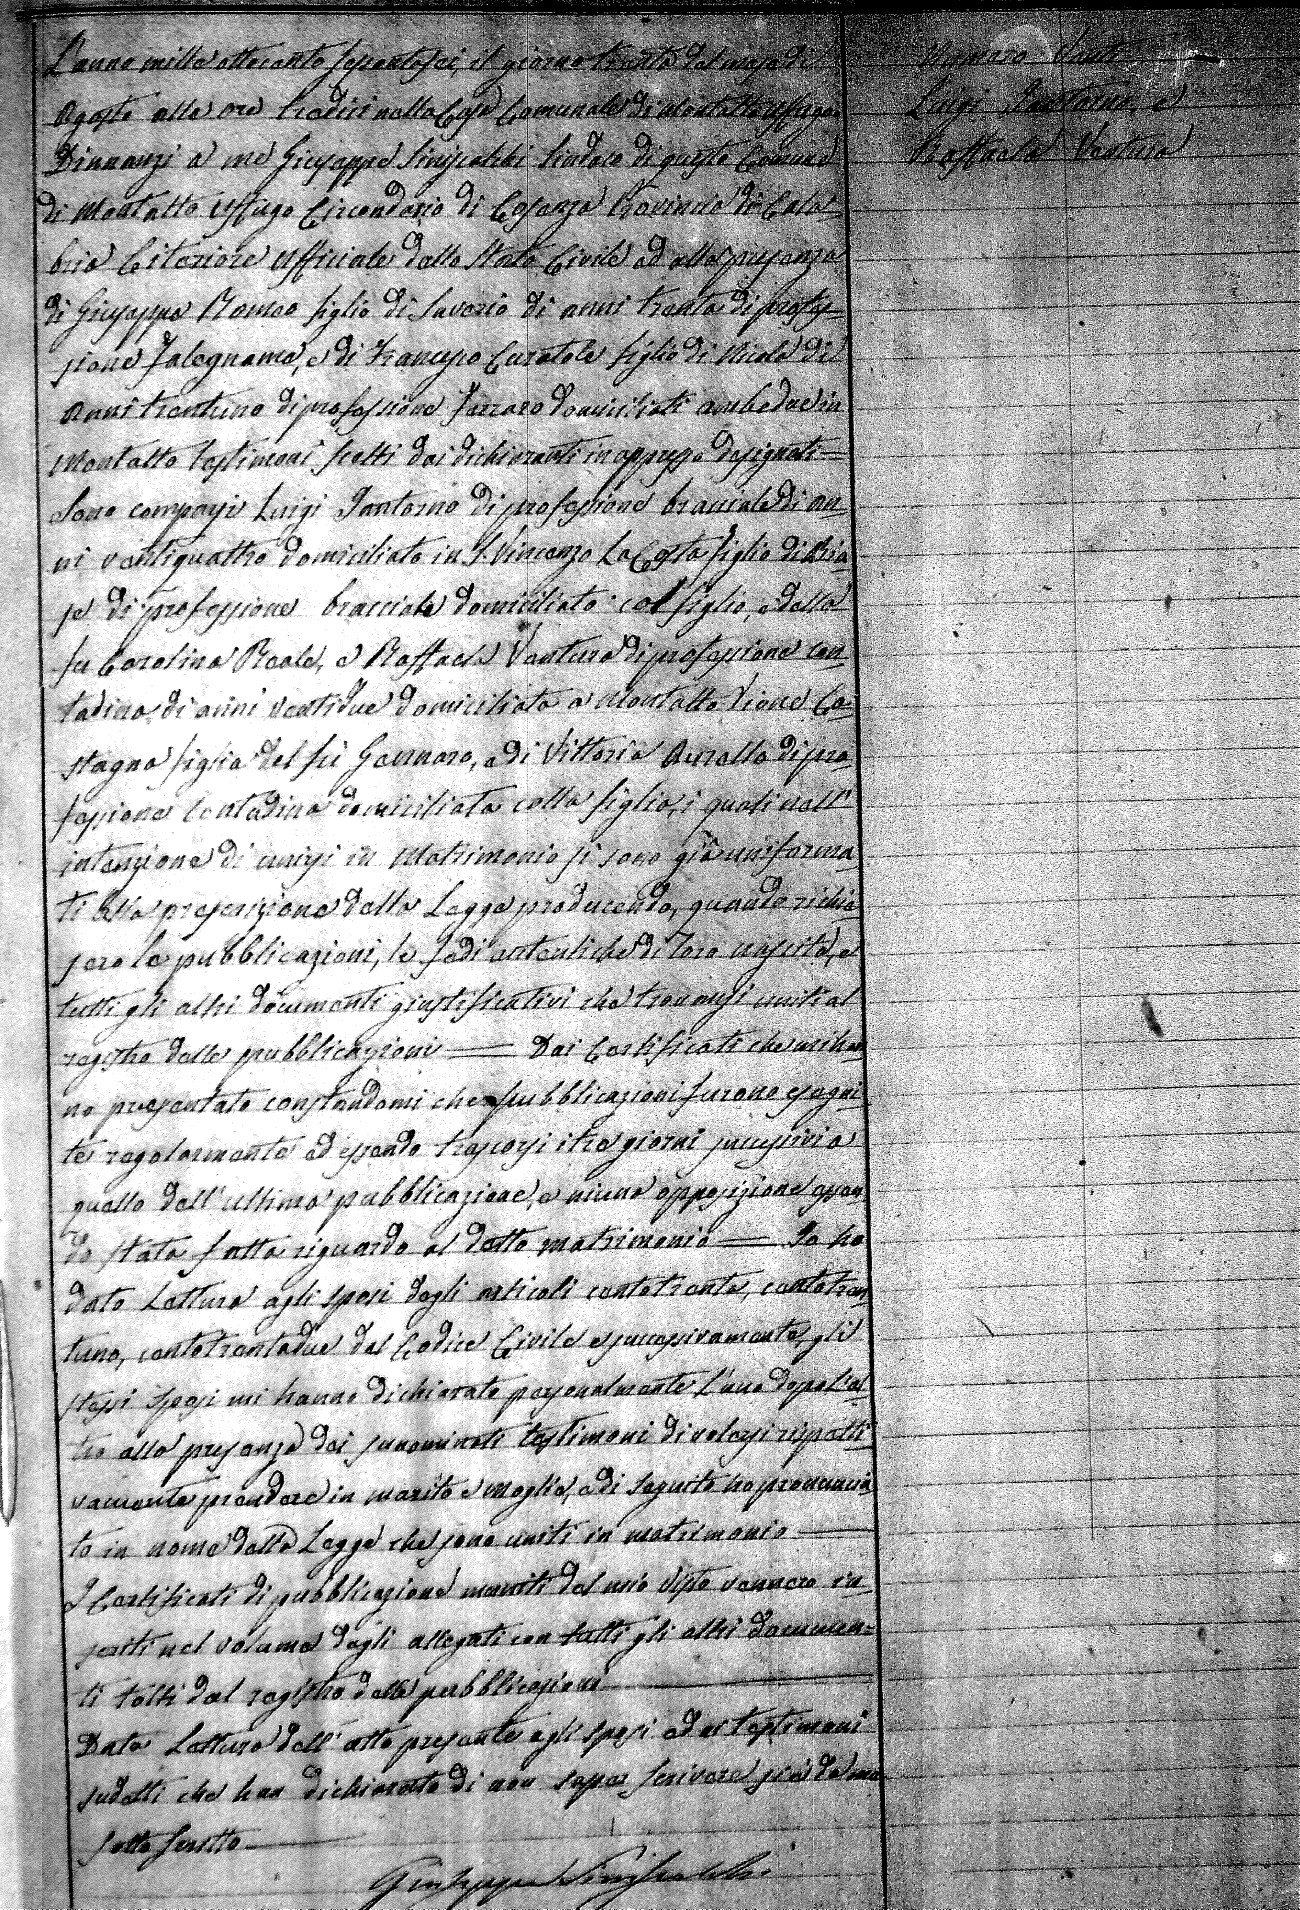 L'anno mille ottocento settantasei, il giorno trenta del mese di
Agosto alle ore tredici nella Casa Comunale di Montalto Uffugo
Dinnanzi a me Giuseppe Siniscalchi Sindaco di questo Comune
di Montalto Uffugo Circondario di Cosenza Provincia di Cala
bria Citeriore Ufficiale dello Stato Civile ed alla presenza
di Giuseppe Romeo figlio di Saverio di anni trenta di profes=
sione Falegname, e di Francesco Curatolo figlio di Nicola di
anni trentuno di professione Ferraro domiciliati ambedue in
Montalto testimoni scelti dai dichiaranti in appresso designati —
Sono comparsi Luigi Santorno di professione bracciale di an=
ni ventiquattro domiciliato in S. Vincenzo La Costa figlio di Bia=
se di professione bracciale domiciliato col figlio, e della
fu Carolina Reale, e Raffaela Ventura di professione con=
tadina di anni ventidue domiciliata a Montalto Rione Ca=
stagna figlia del fu Gennaro, e di Vittoria Aurello di pro=
fessione Contadina domiciliata colla figlia, i quali nell'
intenzione di unirsi in Matrimonio si sono già uniforma
ti alla prescrizione della Legge producendo, quando richie
sero le pubblicazioni, le fedi autentiche di loro nascita, e
tutti gli altri documenti giustificativi che trovansi uniti al
registro delle pubblicazioni — Dai Certificati che mi han
no presentato constandomi che pubblicazioni furono esegui=
te regolarmente ed essendo trascorsi i tre giorni successivi a
quello dell'ultima pubblicazione, e niuna opposizione essen
do stata fatta riguardo al detto matrimonio — Io ho
dato Lettura agli sposi degli articoli centotrenta, centotren
tuno, centotrentadue del Codice Civile e successivamente, gli
stessi sposi mi hanno dichiarato personalmente l'uno dopo l'al
tro alla presenza dei sunominati testimoni di volersi rispetti
vamente prendere in marito e moglie, e di seguito ho pronuncia
to in nome della Legge che sono uniti in matrimonio —
I Certificati di pubblicazione muniti del mio visto vennero in=
seriti nel volume degli allegati con tutti gli altri documen=
ti tolti dal registro delle pubblicazioni —
Data Lettura dell'atto presente agli sposi ed ai testimoni
sudetti che han dichiarato di non saper scrivere si è da me
sottoscritto —
Giuseppe Siniscalchi
Luigi Santorno e
Raffaela Ventura